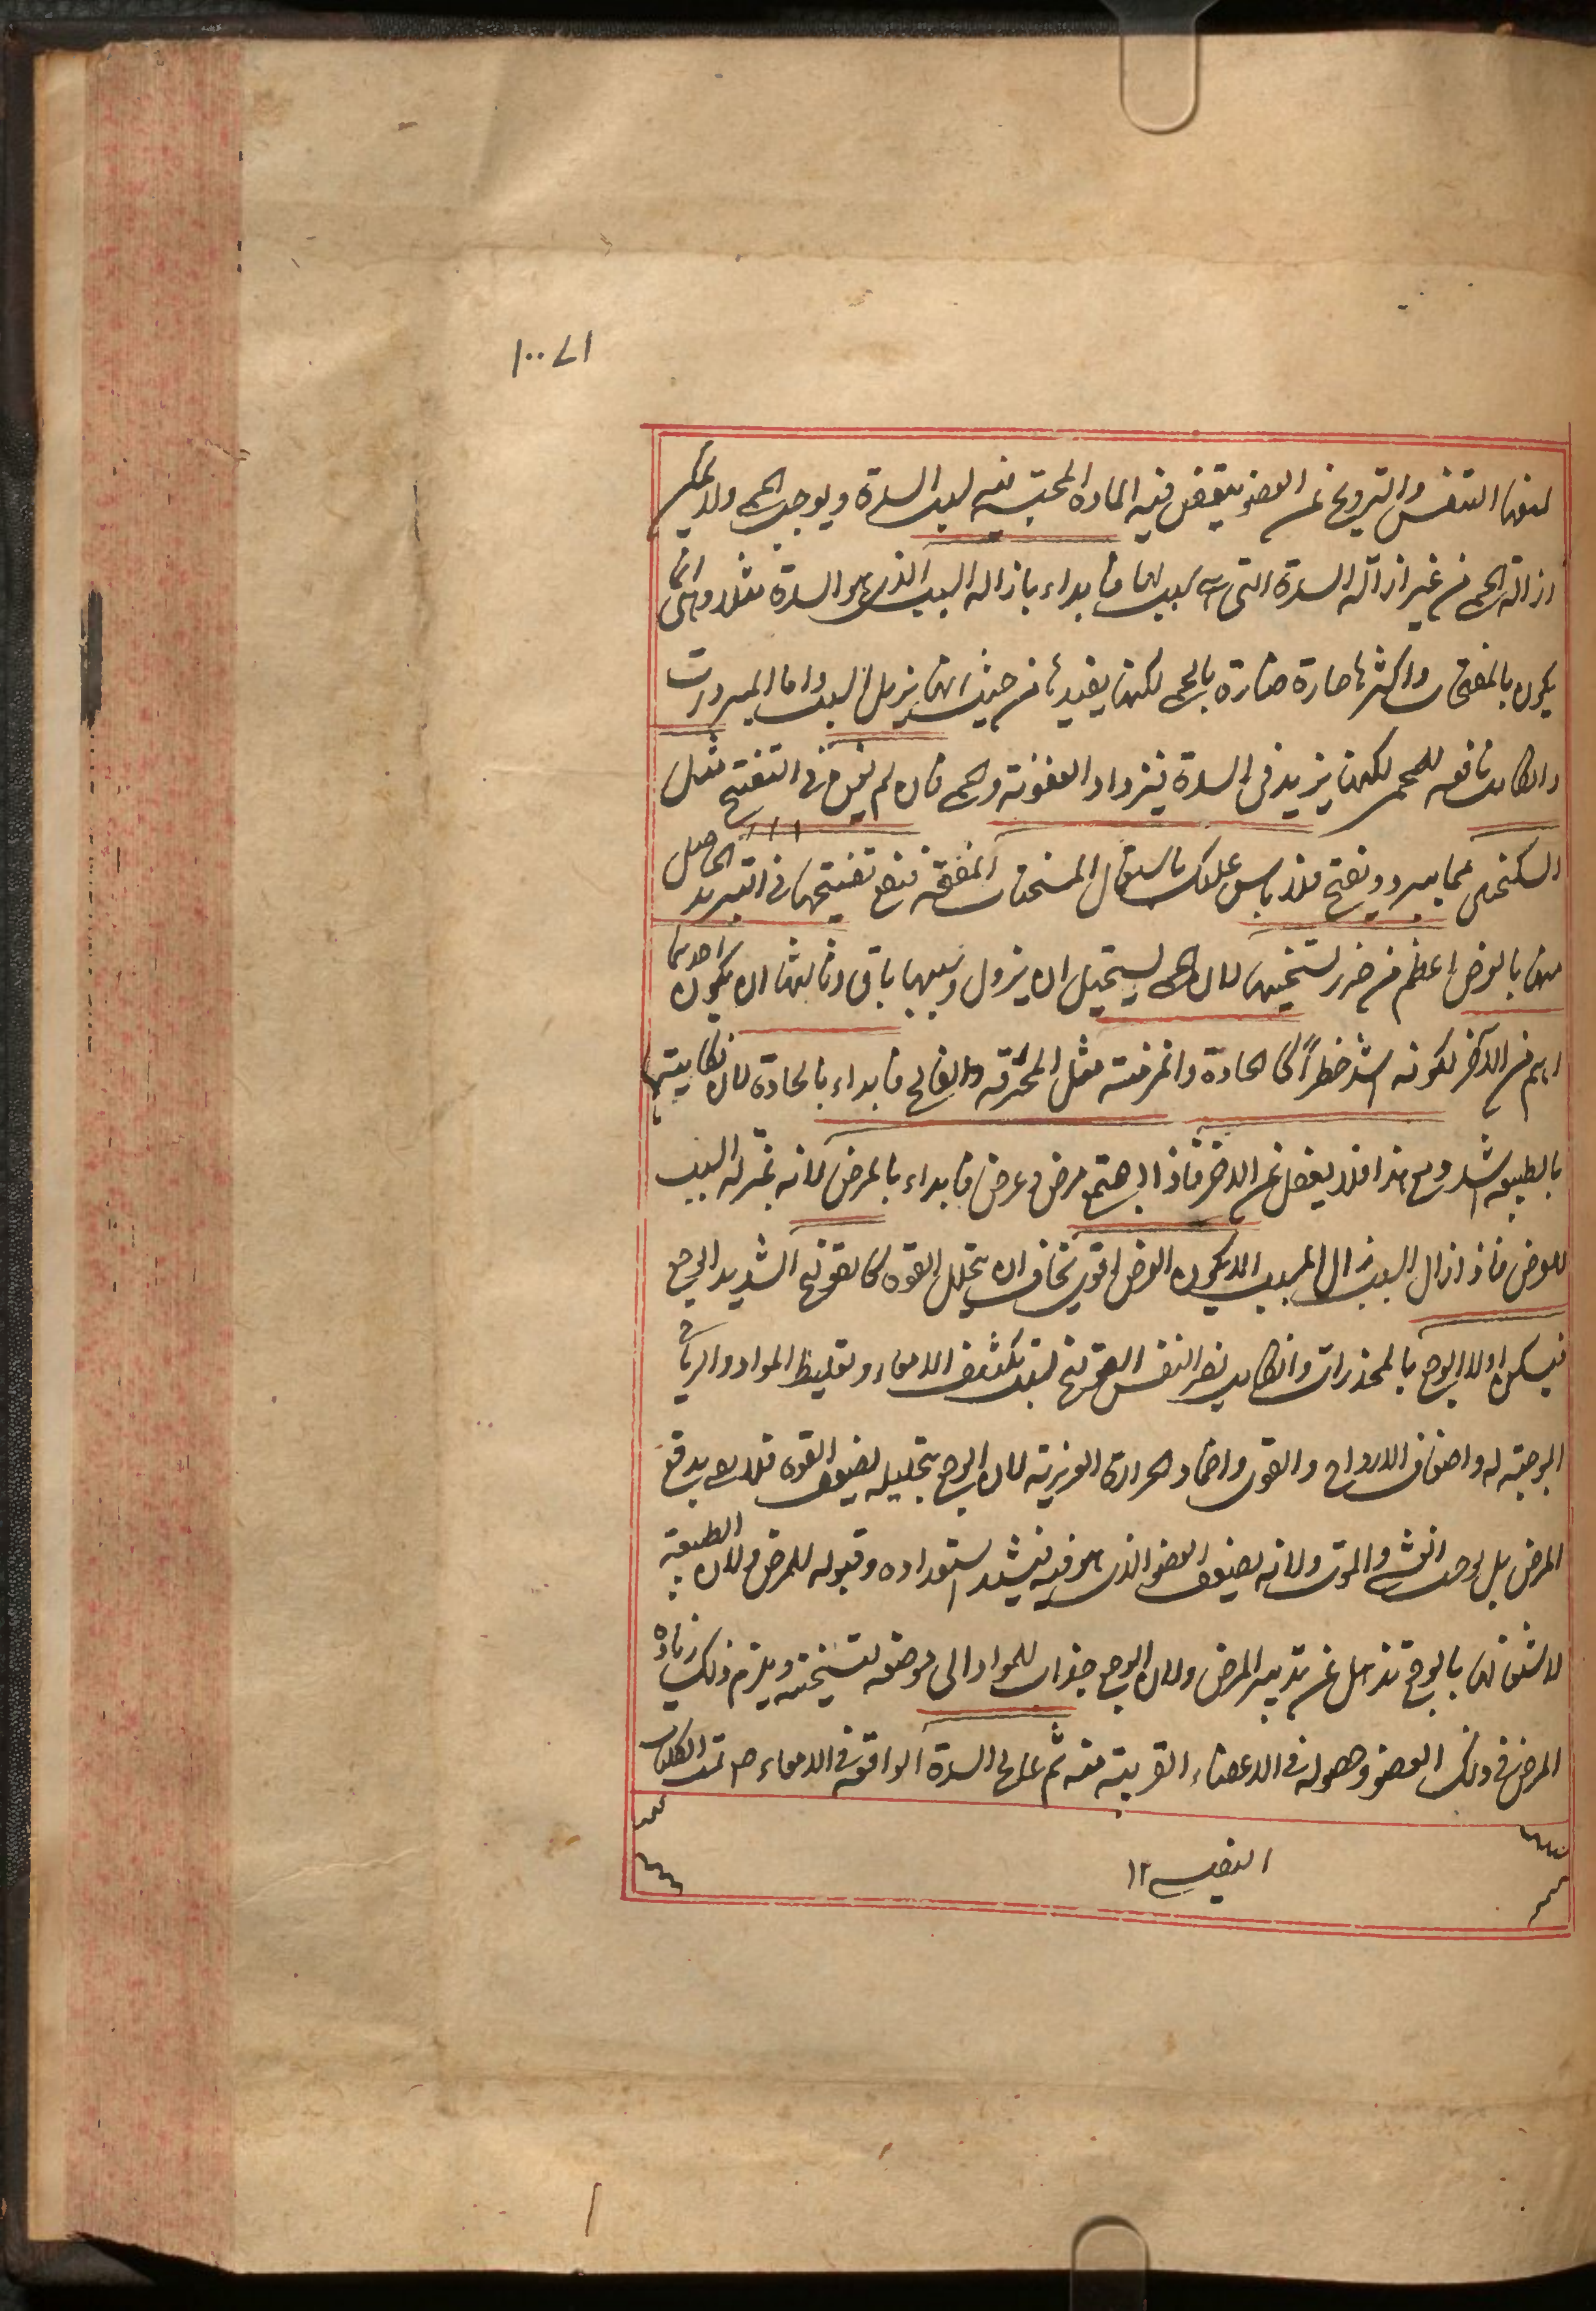 ١٠٠٧١
لمنعها التنفس والترويح عن العضو فيتعفن فيه المادة المحتبسة فيه لسبب السدة ويوجب الحمى ولا يمكن
ازالة الحمى من غير ازالة السدة التى هى سببها فابداء بازالة السبب الذى هو السدة مثلا وانما
يكون بالمفتحات واكثرها حارة ضارة بالحمى لكنها يفيدها من حيث انها يزيل السبب واما المبردات
وانكانت نافعه للحمى لكنها يزيد فى السدة فيزداد العفونة والحمى فان لم يف فى التفتيح مثل
السكنجبين مما يبرد ويفتح فلا باس عليك باستعمال المسخنات المفتحة فنفع تفتيحها فى التبريد الحاصل
منها بالعرض اعظم من ضرر تسخينها لان الحمى يستحيل ان يزول وسببها باق وثالثها ان يكون احدهما
اهم من الآخر لكونه اشد خطراً كالحادة والمزمنة مثل المحرقه والفالج فابداء بالحادة لان نكايتها
بالطبيعه اشد ومع هذا فلا يغفل عن الاخر فاذا اجتمع مرض وعرض فابداء بالمرض لانه بمنزلة السبب
للعرض فاذا زال السبب زال المسبب الا ان يكون العرض اقوى يخاف ان يتحلل القوة كالقولنج الشديد الوجع
فيسكن اولا الوجع بالمخدرات وانكانت يضر النفس القولنج لتكثيف الامعاء وتغليظ المواد والرياح
الموجبة له واضعاف الارواح والقوى واخماد الحرارة الغريزية لان الوجع بتحليله يضعف القوة فلا يدفع
المرض بل يوجب الغشى والموت ولانه يضعف العضو الذى هو فيه فيشتد استعداده وقبوله للمرض ولان الطبيعة
لاشتغالها بالوجع تذهل عن تدبير المرض ولان الوجع جذاب للمواد الى موضعه لتسخينه ويلزم ذلك زيادة
المرض فى ذلك العضو وحصوله فى الاعضاء القريبة منه ثم عالج السدة الواقعة فى الامعاء تمت الكليات
النفيسى ١٢